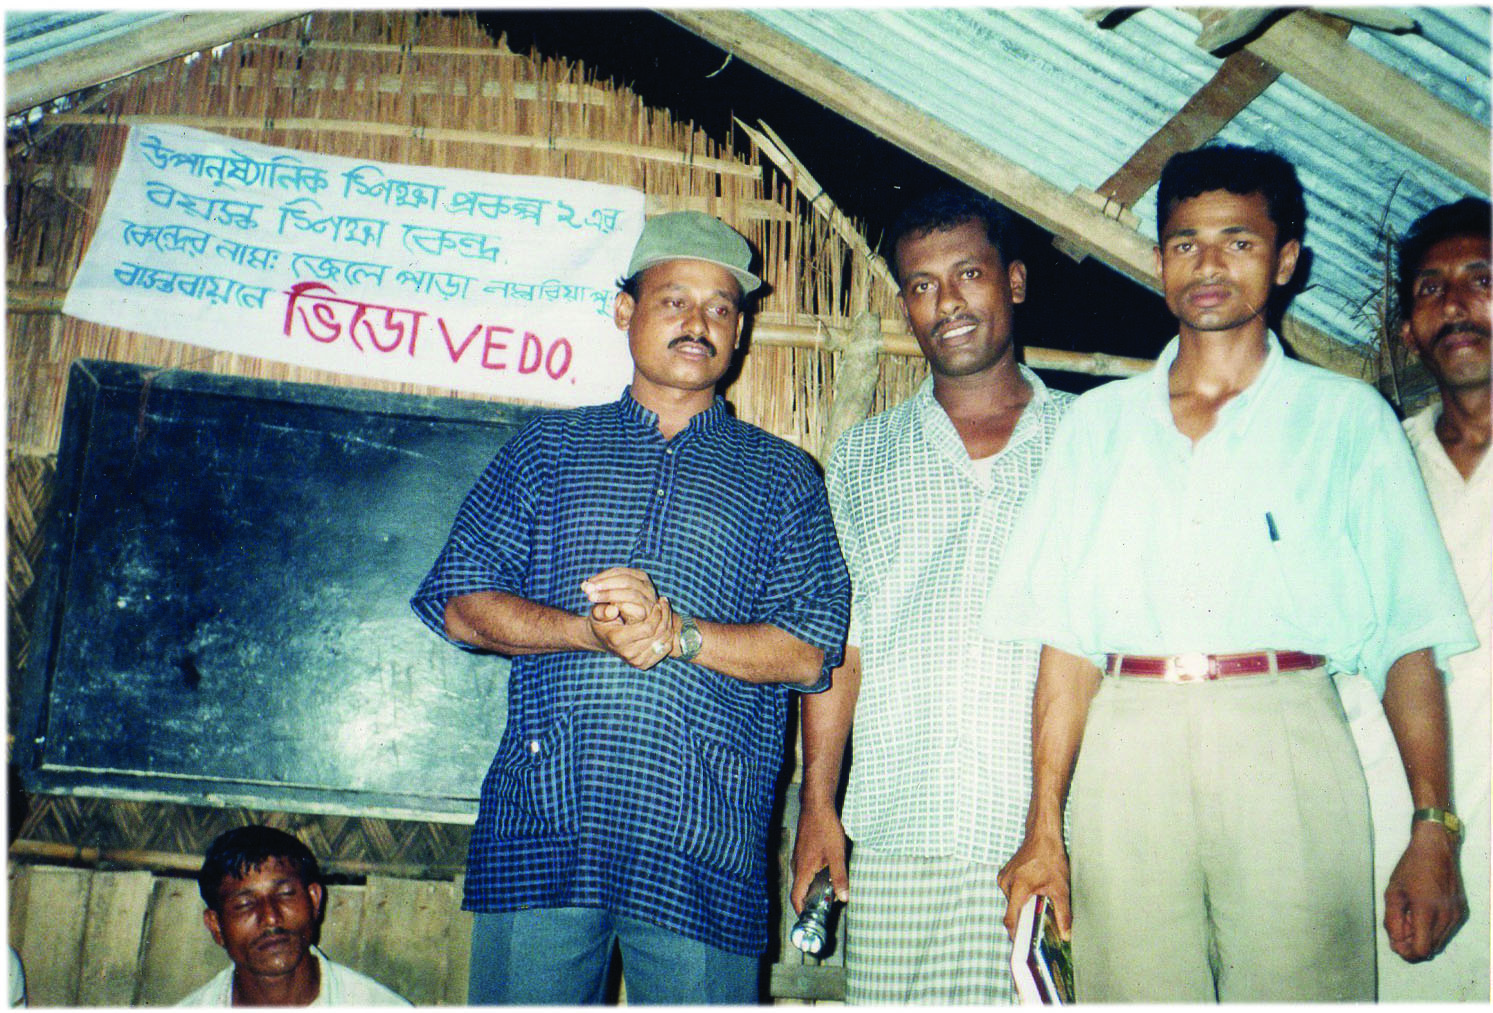 উপানুষ্ঠানিক শিক্ষা প্রকল্প ২ এর
বয়স্ক শিক্ষা কেন্দ্র
কেন্দ্রের নাম: জেলে পাড়া
বাস্তবায়নে ভিডো VEDO.